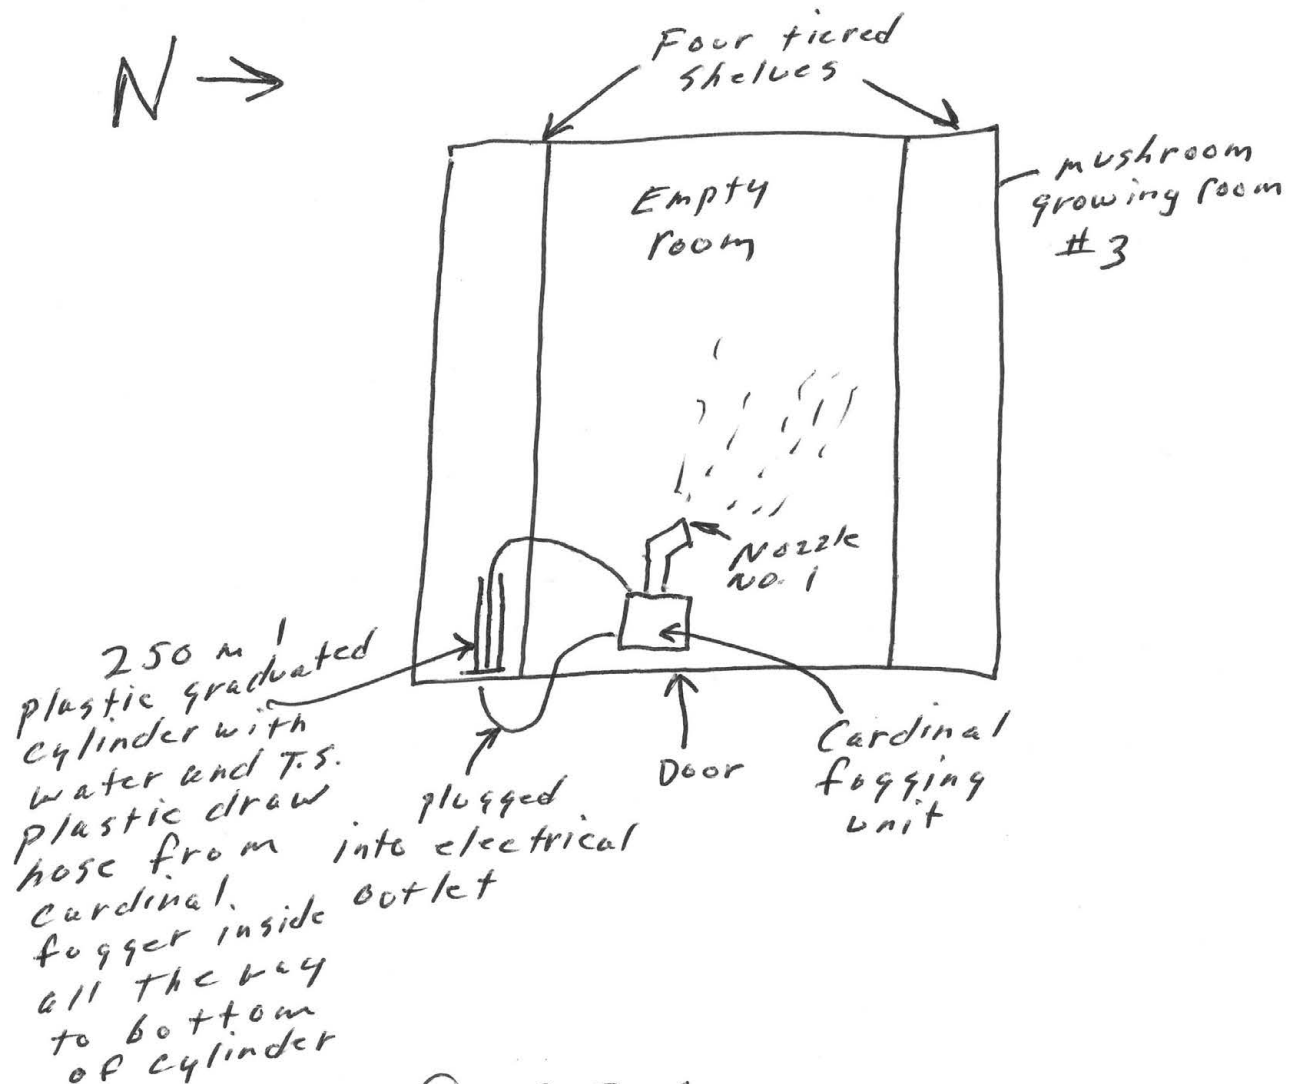 N
Four tiered
shelves
Empty
room
mushroom
growing room
#3
Nozzle
No. 1
250 ml
plastic graduated
cylinder with
water and T.S.
plastic draw
hose from
Cardinal.
fogger inside
all the way
to bottom
of cylinder
plugged
into electrical
outlet
Door
Cardinal
fogging
unit